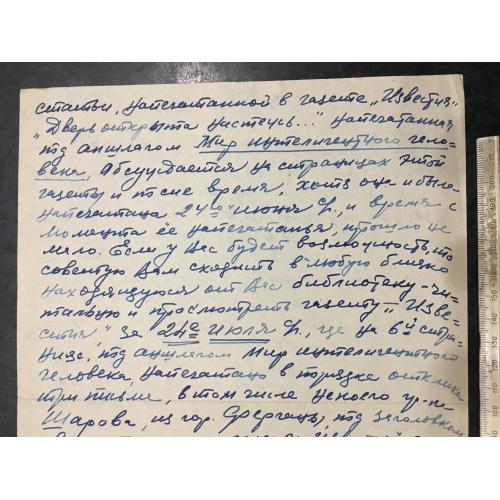 статьи, напечатанной в газете „Известия"
„Дверь открыта настежь..." напечатанная
под аншлагом Мир интеллигентного чело-
века, Обсуждается на страницах этой
газеты и после время, хотя она и была
напечатана 24го июня с/г., и время с
момента её напечатанья, прошло не
мало. Если у Вас будет возможность, то
советую Вам сходить в любую близко
находящуюся от Вас библиотеку-чи-
тальню и просмотреть газету „Изве-
стия", за 24е июля с/г., где на 6й стра-
нице, под аншлагом Мир интеллигентного
человека, напечатано в порядке отклика
три письма, в том числе некоего гр-на
Шарова, из гор. Ферганы, под заголовком